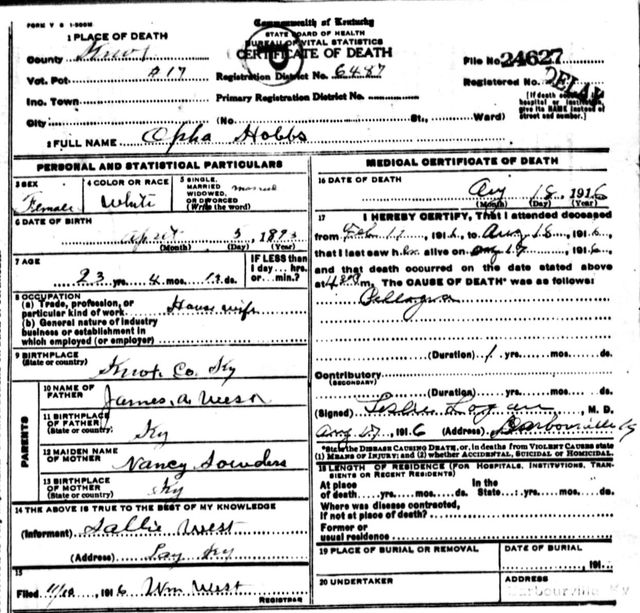 FORM V S 1-500M
Commonwealth of Kentucky
STATE BOARD OF HEALTH
BUREAU OF VITAL STATISTICS
CERTIFICATE OF DEATH
1 PLACE OF DEATH
County Knox
Vot. Pct A 17
Registration District No. 6487
File No. 24627
Registered No.
DELAY
Inc. Town
Primary Registration District No.
[If death occurred in a hospital or institution, give its NAME instead of street and number.]
City (No. St., Ward)
2 FULL NAME Opha Hobbs
PERSONAL AND STATISTICAL PARTICULARS
3 SEX Female
4 COLOR OR RACE White
5 SINGLE, MARRIED, WIDOWED, OR DIVORCED (Write the word) married
6 DATE OF BIRTH
3 1893
(Month) (Day) (Year)
7 AGE
23 yrs. 4 mos. ds.
IF LESS than 1 day... hrs. or min.?
8 OCCUPATION
(a) Trade, profession, or particular kind of work House wife
(b) General nature of industry business or establishment in which employed (or employer)
9 BIRTHPLACE
(State or country) Knox Co. Ky
PARENTS
10 NAME OF FATHER James A West
11 BIRTHPLACE OF FATHER (State or country) Ky
12 MAIDEN NAME OF MOTHER Nancy Sowders
13 BIRTHPLACE OF MOTHER (State or country) Ky
14 THE ABOVE IS TRUE TO THE BEST OF MY KNOWLEDGE
(Informant) Sallie West
(Address) Ky
15
Filed 1916 Wm West
REGISTRAR
MEDICAL CERTIFICATE OF DEATH
16 DATE OF DEATH
Aug 18, 1916
(Month) (Day) (Year)
17 I HEREBY CERTIFY, That I attended deceased
from Feb 1916, to Aug 18, 1916,
that I last saw her alive on Aug 17, 1916,
and that death occurred on the date stated above
at m. The CAUSE OF DEATH* was as follows:
Pellagra
(Duration) 1 yrs. mos. ds.
Contributory
(SECONDARY)
(Duration) yrs. mos. ds.
(Signed) Leslie Logan, M. D.
Aug 1916 (Address) Barbourville Ky
*State the DISEASE CAUSING DEATH, or, in deaths from VIOLENT CAUSES state (1) MEANS OF INJURY; and (2) whether ACCIDENTAL, SUICIDAL OR HOMICIDAL.
18 LENGTH OF RESIDENCE (FOR HOSPITALS, INSTITUTIONS, TRANSIENTS OR RECENT RESIDENTS)
At place of death yrs. mos. ds.
In the State yrs. mos. ds.
Where was disease contracted, if not at place of death?
Former or usual residence
19 PLACE OF BURIAL OR REMOVAL
DATE OF BURIAL
, 191
20 UNDERTAKER
ADDRESS
Barbourville Ky